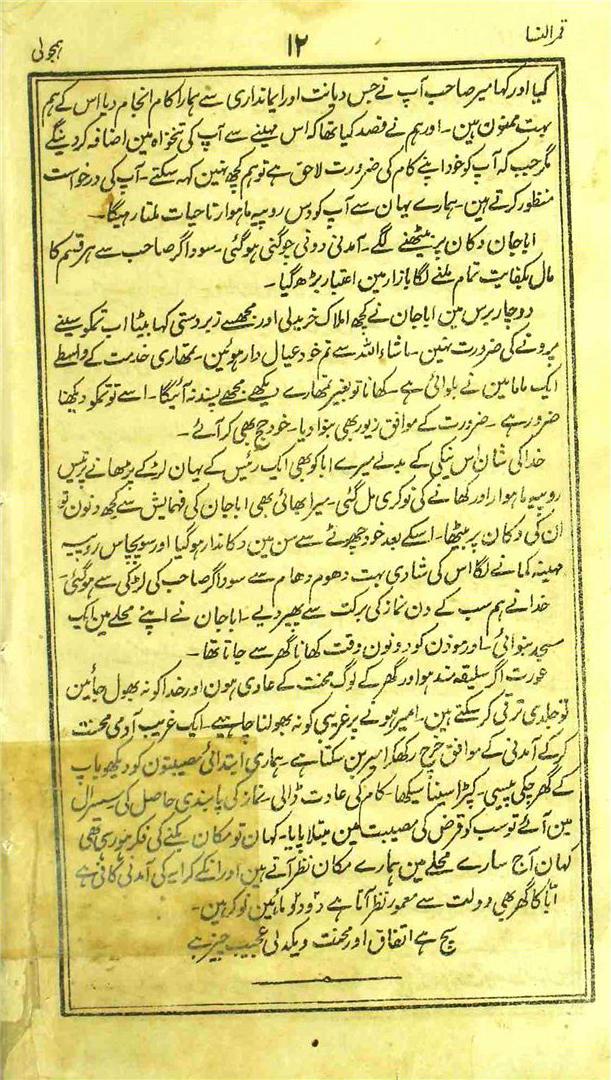 قمر النسا
۱۲
ہمجولی
کیا اور کہا میر صاحب آپ نے جس دیانت اور ایمانداری سے ہمارا کام انجام دیا اس کے ہم
بہت ممنون ہین۔ اور ہم نے قصد کیا تھا کہ اس مہینے سے آپ کی تنخواہ مین اضافہ کر دینگے
مگر جب کہ آپ کو خود اپنے کام کی ضرورت لاحق ہے تو ہم کچھ نہین کہہ سکتے۔ آپ کی درخواست
منظور کرتے ہین۔ ہمارے یہان سے آپ کو دس روپیہ ماہوار تا حیات ملتا رہیگا۔
ابا جان دکان پر بیٹھنے لگے۔ آمدنی دونی چوگنی ہو گئی۔ سوداگر صاحب سے ہر قسم کا
مال بکفایت تمام ملنے لگا بازار مین اعتبار بڑھ گیا۔
دو چار برس مین ابا جان نے کچھ املاک خرید لی اور مجھسے زبردستی کہا بیٹا اب تمکو سینے
پرونے کی ضرورت نہین۔ ماشاء اللہ سے تم خود عیال دار ہوئین۔ تمھاری خدمت کے واسطے
ایک ماما مین نے بلوائی ہے۔ کھانا تو بغیر تمھارے دیکھے مجھے پسند نہ آئیگا۔ اسے تو تمکو دیکھنا
ضرور ہے۔ ضرورت کے موافق زیور بھی بنوا دیا۔ خود حج بھی کر آئے۔
خدا کی شان اس نیکی کے بدلے میرے ابا کو بھی ایک رئیس کے یہان لڑکے پڑھانے پر تیس
روپیہ ماہوار اور کھانے کی نوکری مل گئی۔ میرا بھائی بھی ابا جان کی فہمایش سے کچھ دنون تو
ان کی دکان پر بیٹھا۔ اسکے بعد خود چھوٹے سے سن مین دکاندار ہو گیا اور سو پچاس روپیہ
مہینہ کمانے لگا اس کی شادی بہت دھوم دھام سے سوداگر صاحب کی لڑکی سے ہو گئی۔
خدا نے ہم سب کے دن نماز کی برکت سے پھیر دیے۔ ابا جان نے اپنے محلے مین ایک
مسجد بنوائی۔ اور موذن کو دونون وقت کھانا گھر سے جاتا تھا۔
عورت اگر سلیقہ مند ہو اور گھر کے لوگ محنت کے عادی ہون اور خدا کو نہ بھول جائین
تو جلدی ترقی کر سکتے ہین۔ امیر ہونے پر غریبی کو نہ بھولنا چاہیے۔ ایک غریب آدمی محنت
کر کے آمدنی کے موافق خرچ رکھکر امیر بن سکتا ہے۔ ہماری ابتدائی مصیبتون کو دیکھو باپ
کے گھر چکی پیسی۔ کپڑا سینا سیکھا۔ کام کی عادت ڈالی۔ نماز کی پابندی حاصل کی سسرال
مین آئے تو سب کو قرض کی مصیبت مین مبتلا پایا۔ کہان تو مکان بکنے کی فکر ہو رہی تھی
کہان آج سارے محلے مین ہمارے مکان نظر آتے ہین اور انکے کرایہ کی آمدنی کافی ہے
ابّا کا گھر بھی دولت سے معمور نظر آتا ہے دو دو مائین نوکر ہین۔
سچ ہے اتفاق اور محنت ویکدلی عجیب چیز ہے